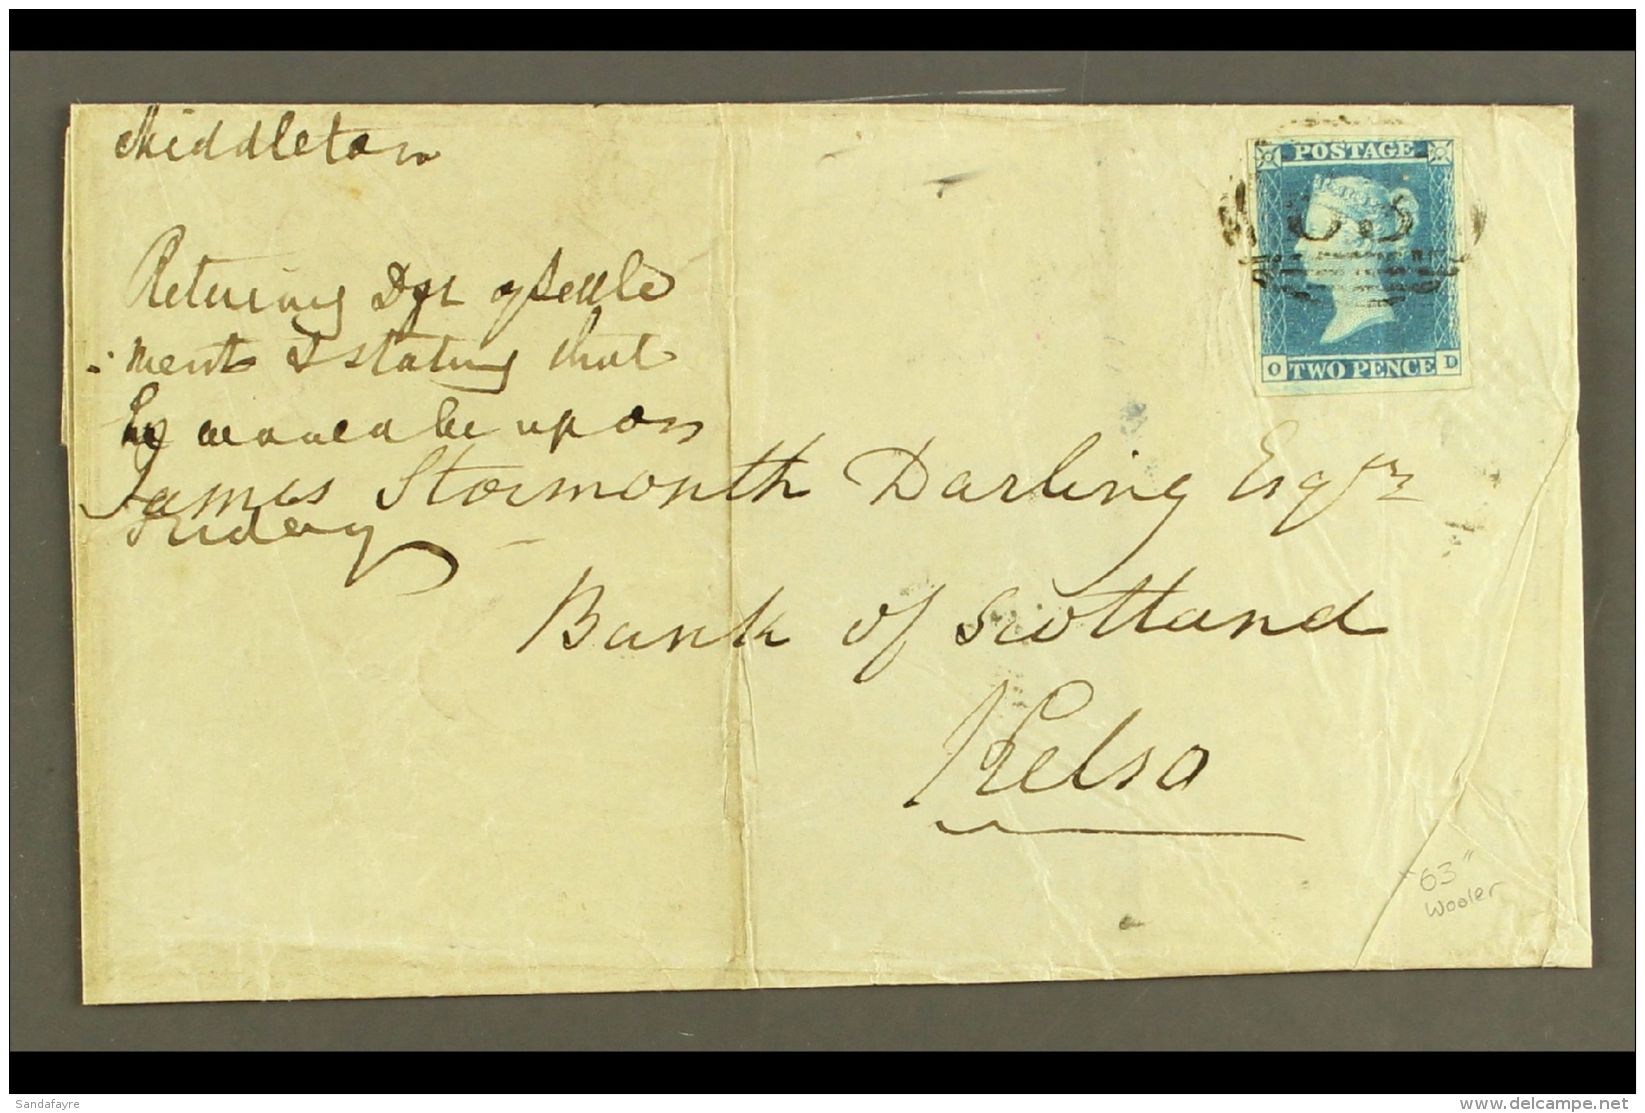 Middleton
Returning Dft of settle
ment & stating that
he would be upon
Friday
James Stormonth Darling Esqr
Bank of Scotland
Kelso
POSTAGE
O TWO PENCE D
"63"
Wooler
Sandafayre
delcampe.net